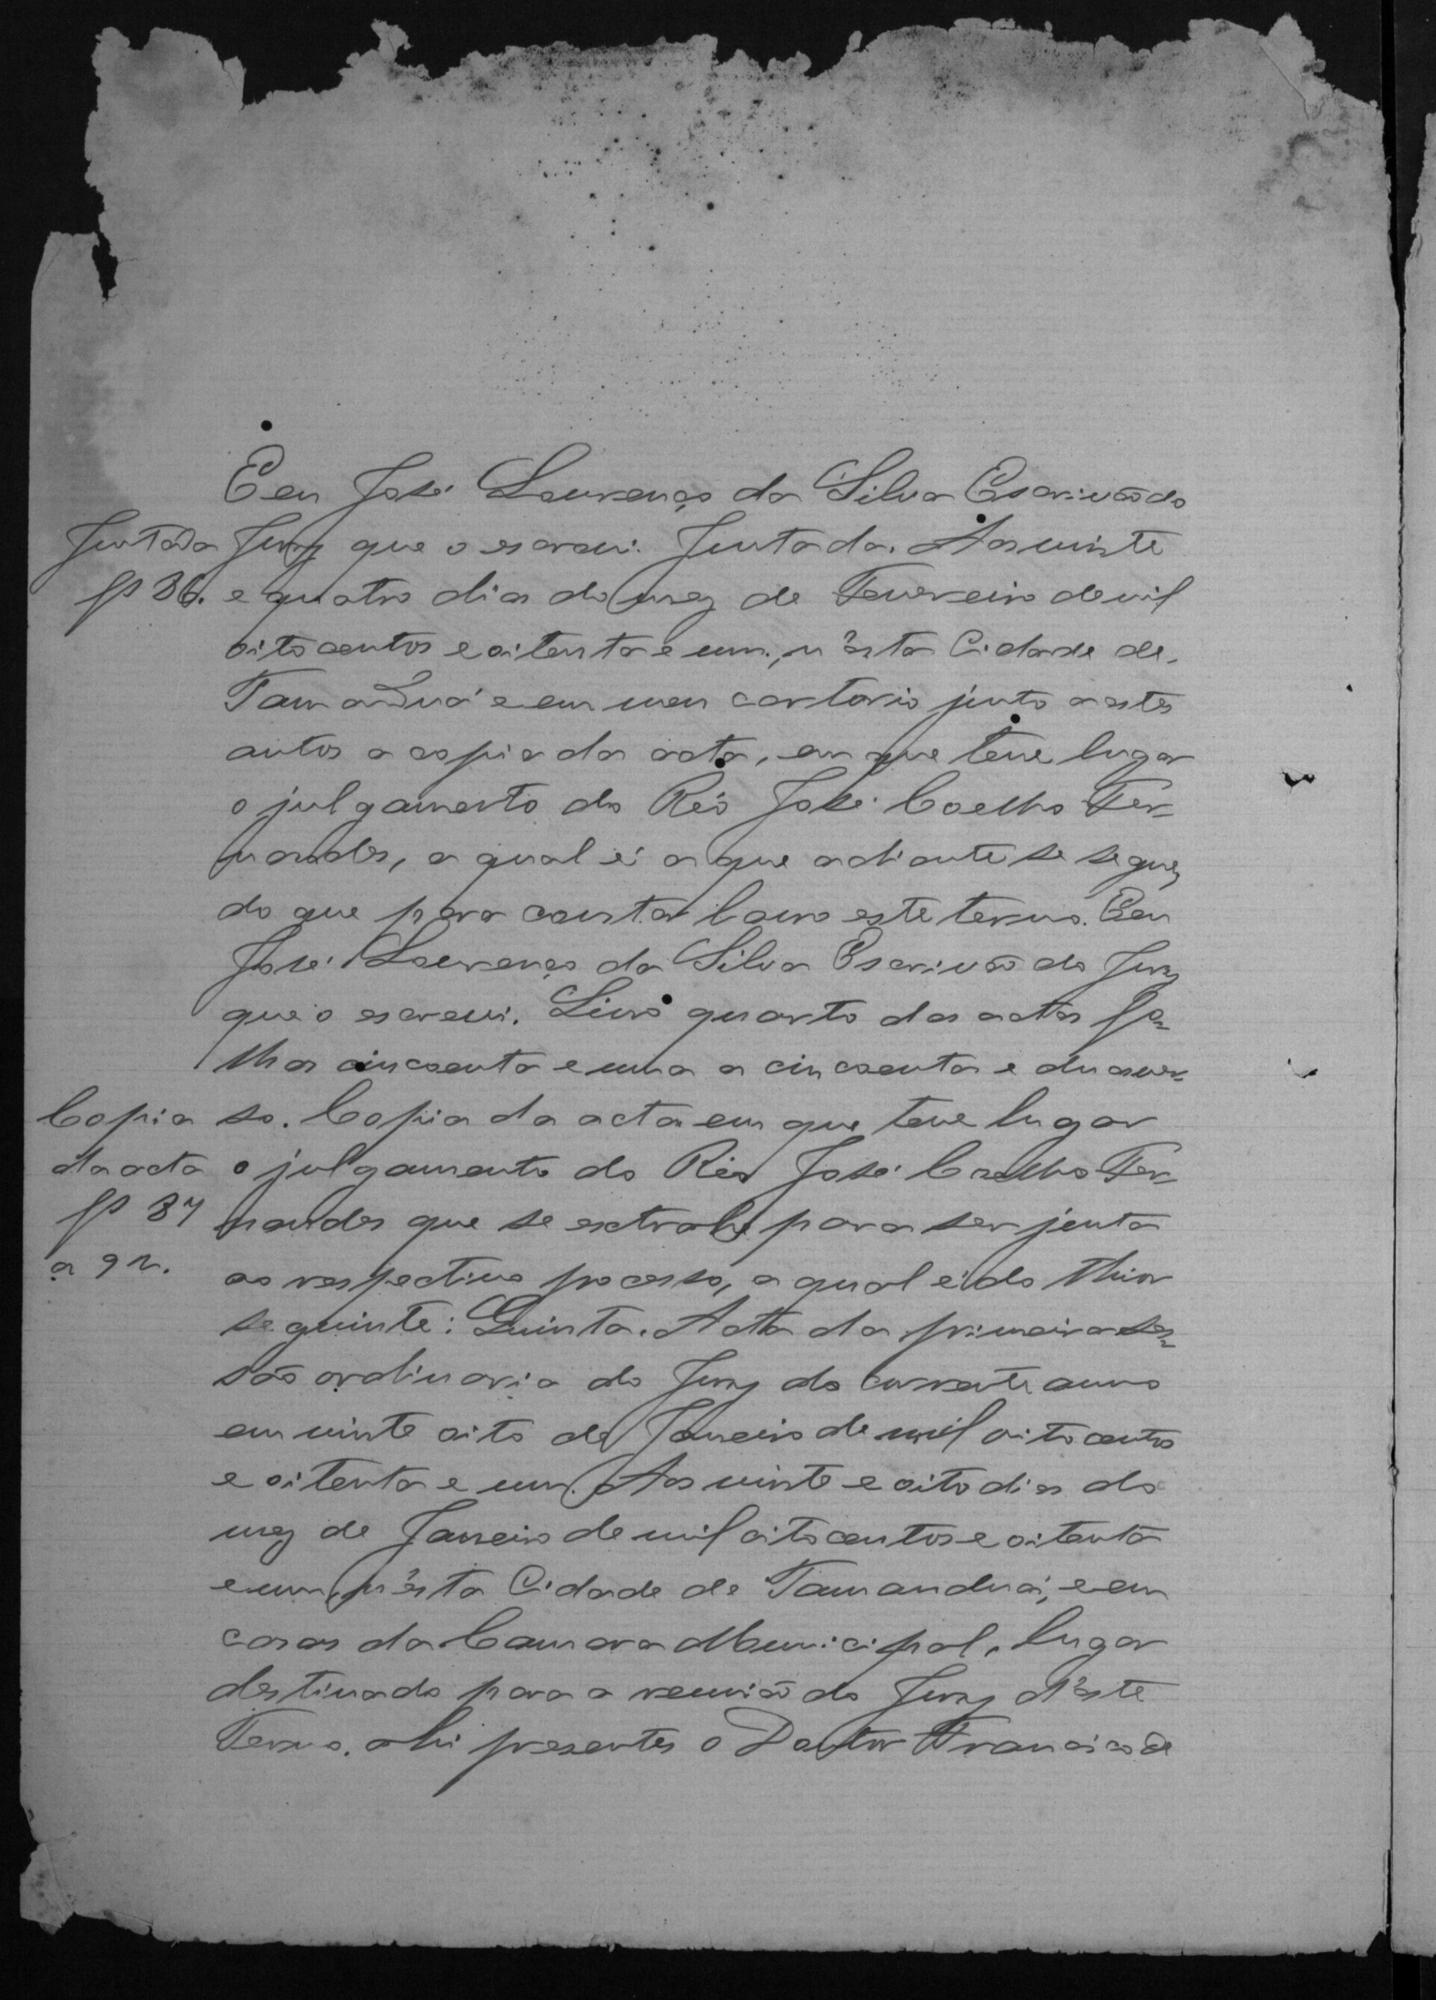 Eu José Lourenço da Silva Escrivão do
Juntada Jury que o escrevi. Juntada. Aos vinte
fs 86. e quatro dias do mez de Fevereiro de mil
oito centos e oitenta e um, n'ésta Cidade de
Tamanduá e em meu cartorio junto a estes
autos a copia da acta, em que teve lugar
o julgamento do Réo José Coelho Fer-
nandes, a qual é a que adiante se segue,
do que para constar lavro este termo. Eu
José Lourenço da Silva Escrivão do Jury
que o escrevi. Livro quarto das actas fo-
lhas cincoenta e uma a cincoenta e duas ver-
Copia so. Copia da acta em que teve lugar
da acta o julgamento do Réo José Coelho Fer-
fs 87 nandes que se extrahe para ser junta
a 92. ao respectivo processo, a qual é do thior
seguinte: Quinta. Acta da primeira ses-
são ordinaria do Jury do corrente anno
em vinte oito de Janeiro de mil oito centos
e oitenta e um. Aos vinte e oito dias do
mez de Janeiro de mil oito centos e oitenta
e um, n'ésta Cidade de Tamanduá, e em
casas da Camara Municipal, lugar
destinado para a reunião do Jury d'éste
Termo, ahi presentes o Doutor Francisco de